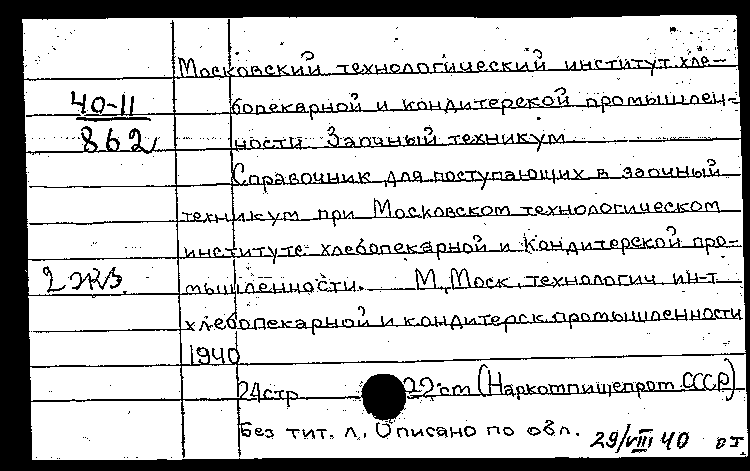 Московский технологический институт хле-
40-11 бопекарной и кондитерской промышлен-
862 ности. Заочный техникум
Справочник для поступающих в заочный
техникум при Московском технологическом
институте хлебопекарной и кондитерской про-
2 экз. мышленности. М, Моск. технологич. ин-т
хлебопекарной и кондитерск. промышленности
1940
24 стр. 22 см (Наркомпищепром СССР)
Без тит. л. Описано по обл. 29/VIII 40